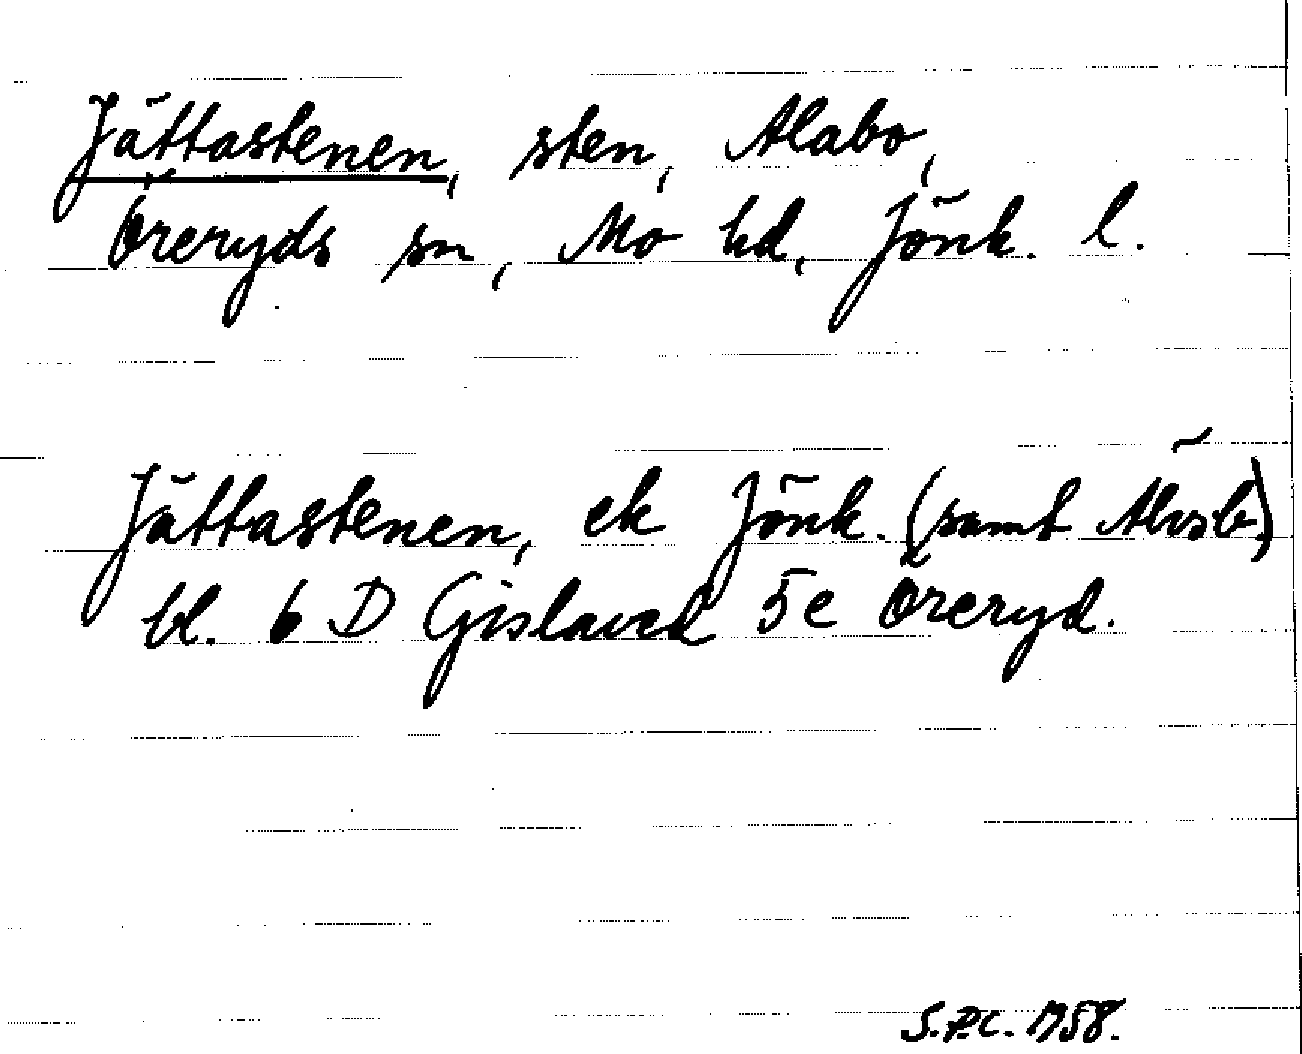 Jättastenen, sten, Alabo,
Öreryds sn, Mo hd, Jönk. l.
Jättastenen, ek Jönk. (samt Älvsb)
bl. 6 D Gislaved 5e Öreryd.
S.P.C. 1958.